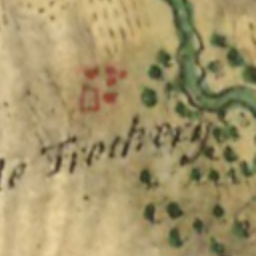 le Frethery